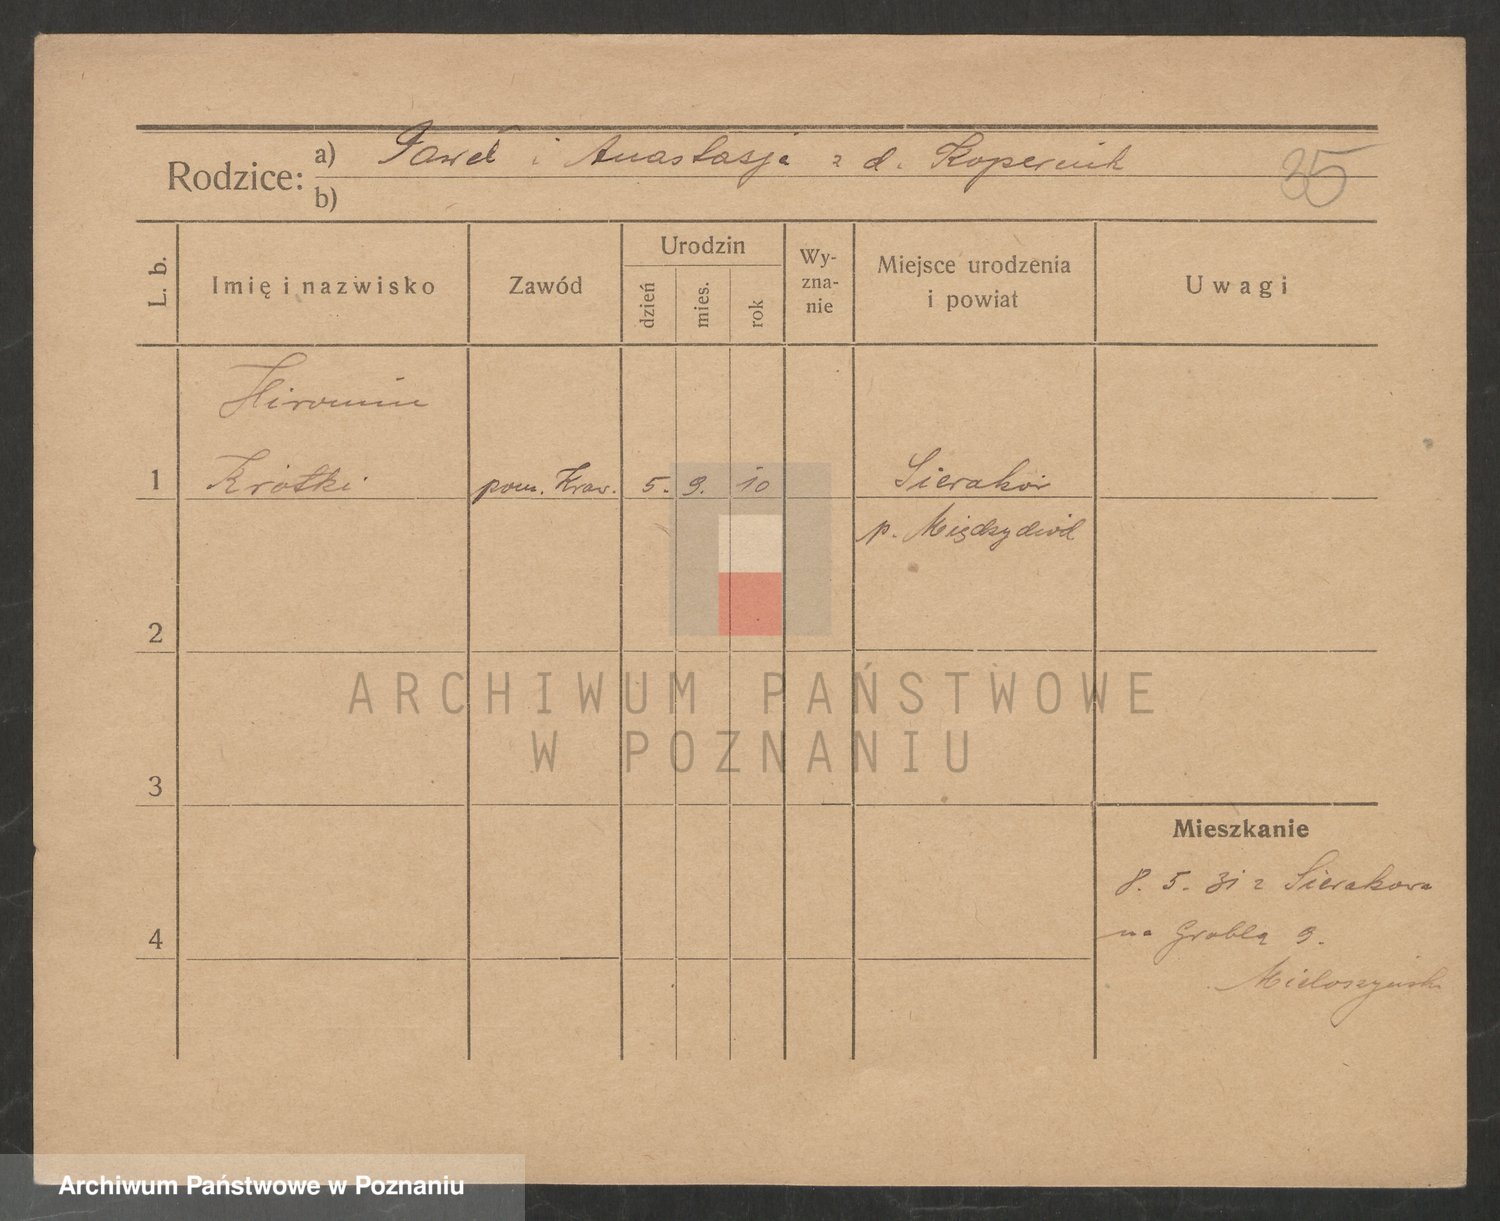 Rodzice: a) Paweł i Anastasja z d. Kopernik
35
b)
L. b. Imię i nazwisko Zawód Urodzin dzień mies. rok Wy-zna-nie Miejsce urodzenia i powiat Uwagi
Hironim
1 Krótki pom. Kraw. 5. 9. 10 Sieraków
p. Międzychód
2
ARCHIWUM PAŃSTWOWE
W POZNANIU
3
Mieszkanie
8. 5. 31 z Sierakowa
4 na Groblą 9.
Archiwum Państwowe w Poznaniu